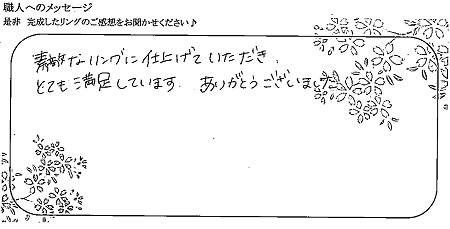 職人へのメッセージ
是非 完成したリングのご感想をお聞かせください♪
素敵なリングに仕上げていただき、
とても満足しています。ありがとうございました。